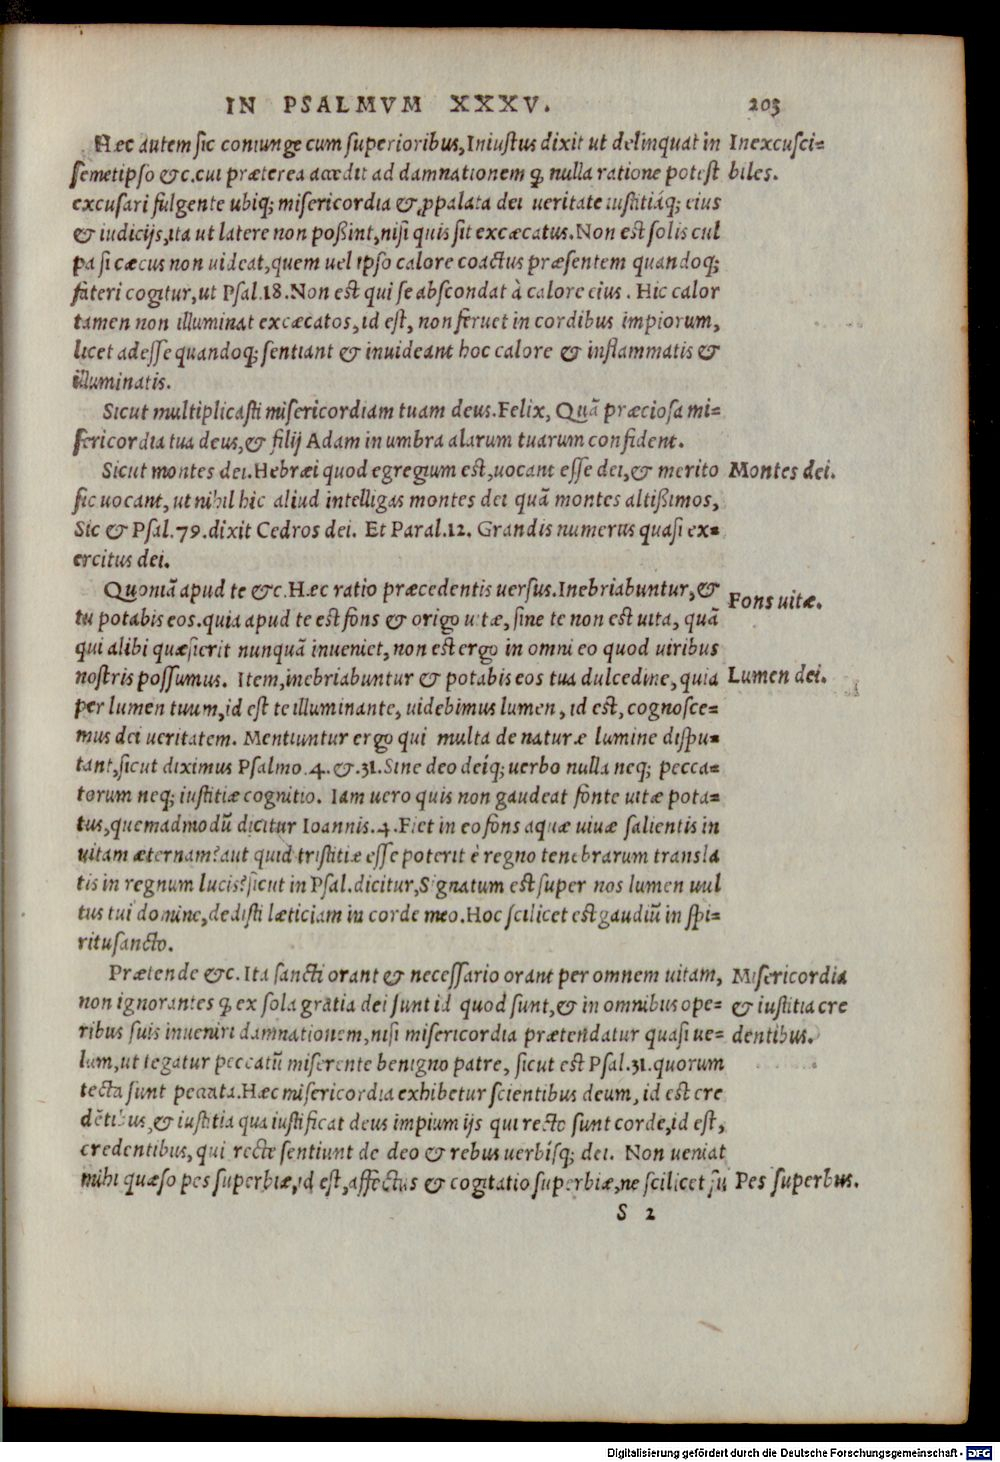 IN PSALMVM XXXV. 203
Hæc autem sic coniunge cum superioribus, Iniustus dixit ut delinquat in
Inexcusci=
semetipso &c. cui præterea accedit ad damnationem ꝙ nulla ratione potest
biles.
excusari fulgente ubiq; misericordia & ꝓpalata dei ueritate iustitiáq; eius
& iudicijs, ita ut latere non poßint, nisi quis sit excæcatus. Non est solis cul
pa si cæcus non uideat, quem uel ipso calore coactus præsentem quandoq;
fateri cogitur, ut Psal. 18. Non est qui se abscondat à calore eius. Hic calor
tamen non illuminat excæcatos, id est, non feruet in cordibus impiorum,
licet adesse quandoq; sentiant & inuideant hoc calore & inflammatis &
illuminatis.
Sicut multiplicasti misericordiam tuam deus. Felix, Quā præciosa mi=
sericordia tua deus, & filij Adam in umbra alarum tuarum confident.
Sicut montes dei. Hebræi quod egregium est, uocant esse dei, & merito
Montes dei.
sic uocant, ut nihil hic aliud intelligas montes dei quā montes altißimos,
Sic & Psal. 79. dixit Cedros dei. Et Paral. 12. Grandis numerus quasi ex=
ercitus dei.
Quoniā apud te &c. Hæc ratio præcedentis uersus. Inebriabuntur, &
Fons uitæ.
tu potabis eos. quia apud te est fons & origo uitæ, sine te non est uita, quā
qui alibi quæsierit nunquā inueniet, non est ergo in omni eo quod uiribus
nostris possumus. Item, inebriabuntur & potabis eos tua dulcedine, quia
Lumen dei.
per lumen tuum, id est te illuminante, uidebimus lumen, id est, cognosce=
mus dei ueritatem. Mentiuntur ergo qui multa de naturæ lumine dispu=
tant, sicut diximus Psalmo. 4. &. 31. Sine deo deíq; uerbo nulla neq; pecca=
torum neq; iustitiæ cognitio. Iam uero quis non gaudeat fonte uitæ pota=
tus, quemadmodū dicitur Ioannis. 4. Fiet in eo fons aquæ uiuæ salientis in
uitam æternam? aut quid tristitiæ esse poterit è regno tenebrarum transla
tis in regnum lucis? sicut in Psal. dicitur, Signatum est super nos lumen uul
tus tui domine, dedisti læticiam in corde meo. Hoc scilicet est gaudiū in spi=
ritusancto.
Prætende &c. Ita sancti orant & necessario orant per omnem uitam,
Misericordia
non ignorantes ꝙ ex sola gratia dei sunt id quod sunt, & in omnibus ope=
& iustitia cre
ribus suis inueniri damnationem, nisi misericordia prætendatur quasi ue=
dentibus.
lum, ut tegatur peccatū miserente benigno patre, sicut est Psal. 31. quorum
tecta sunt peccata. Hæc misericordia exhibetur scientibus deum, id est cre
dētibus, & iustitia qua iustificat deus impium ijs qui recto sunt corde, id est,
credentibus, qui recte sentiunt de deo & rebus uerbísq; dei. Non ueniat
mihi quæso pes superbiæ, id est, affectus & cogitatio superbiæ, ne scilicet su
Pes superbus.
S 2
Digitalisierung gefördert durch die Deutsche Forschungsgemeinschaft - DFG